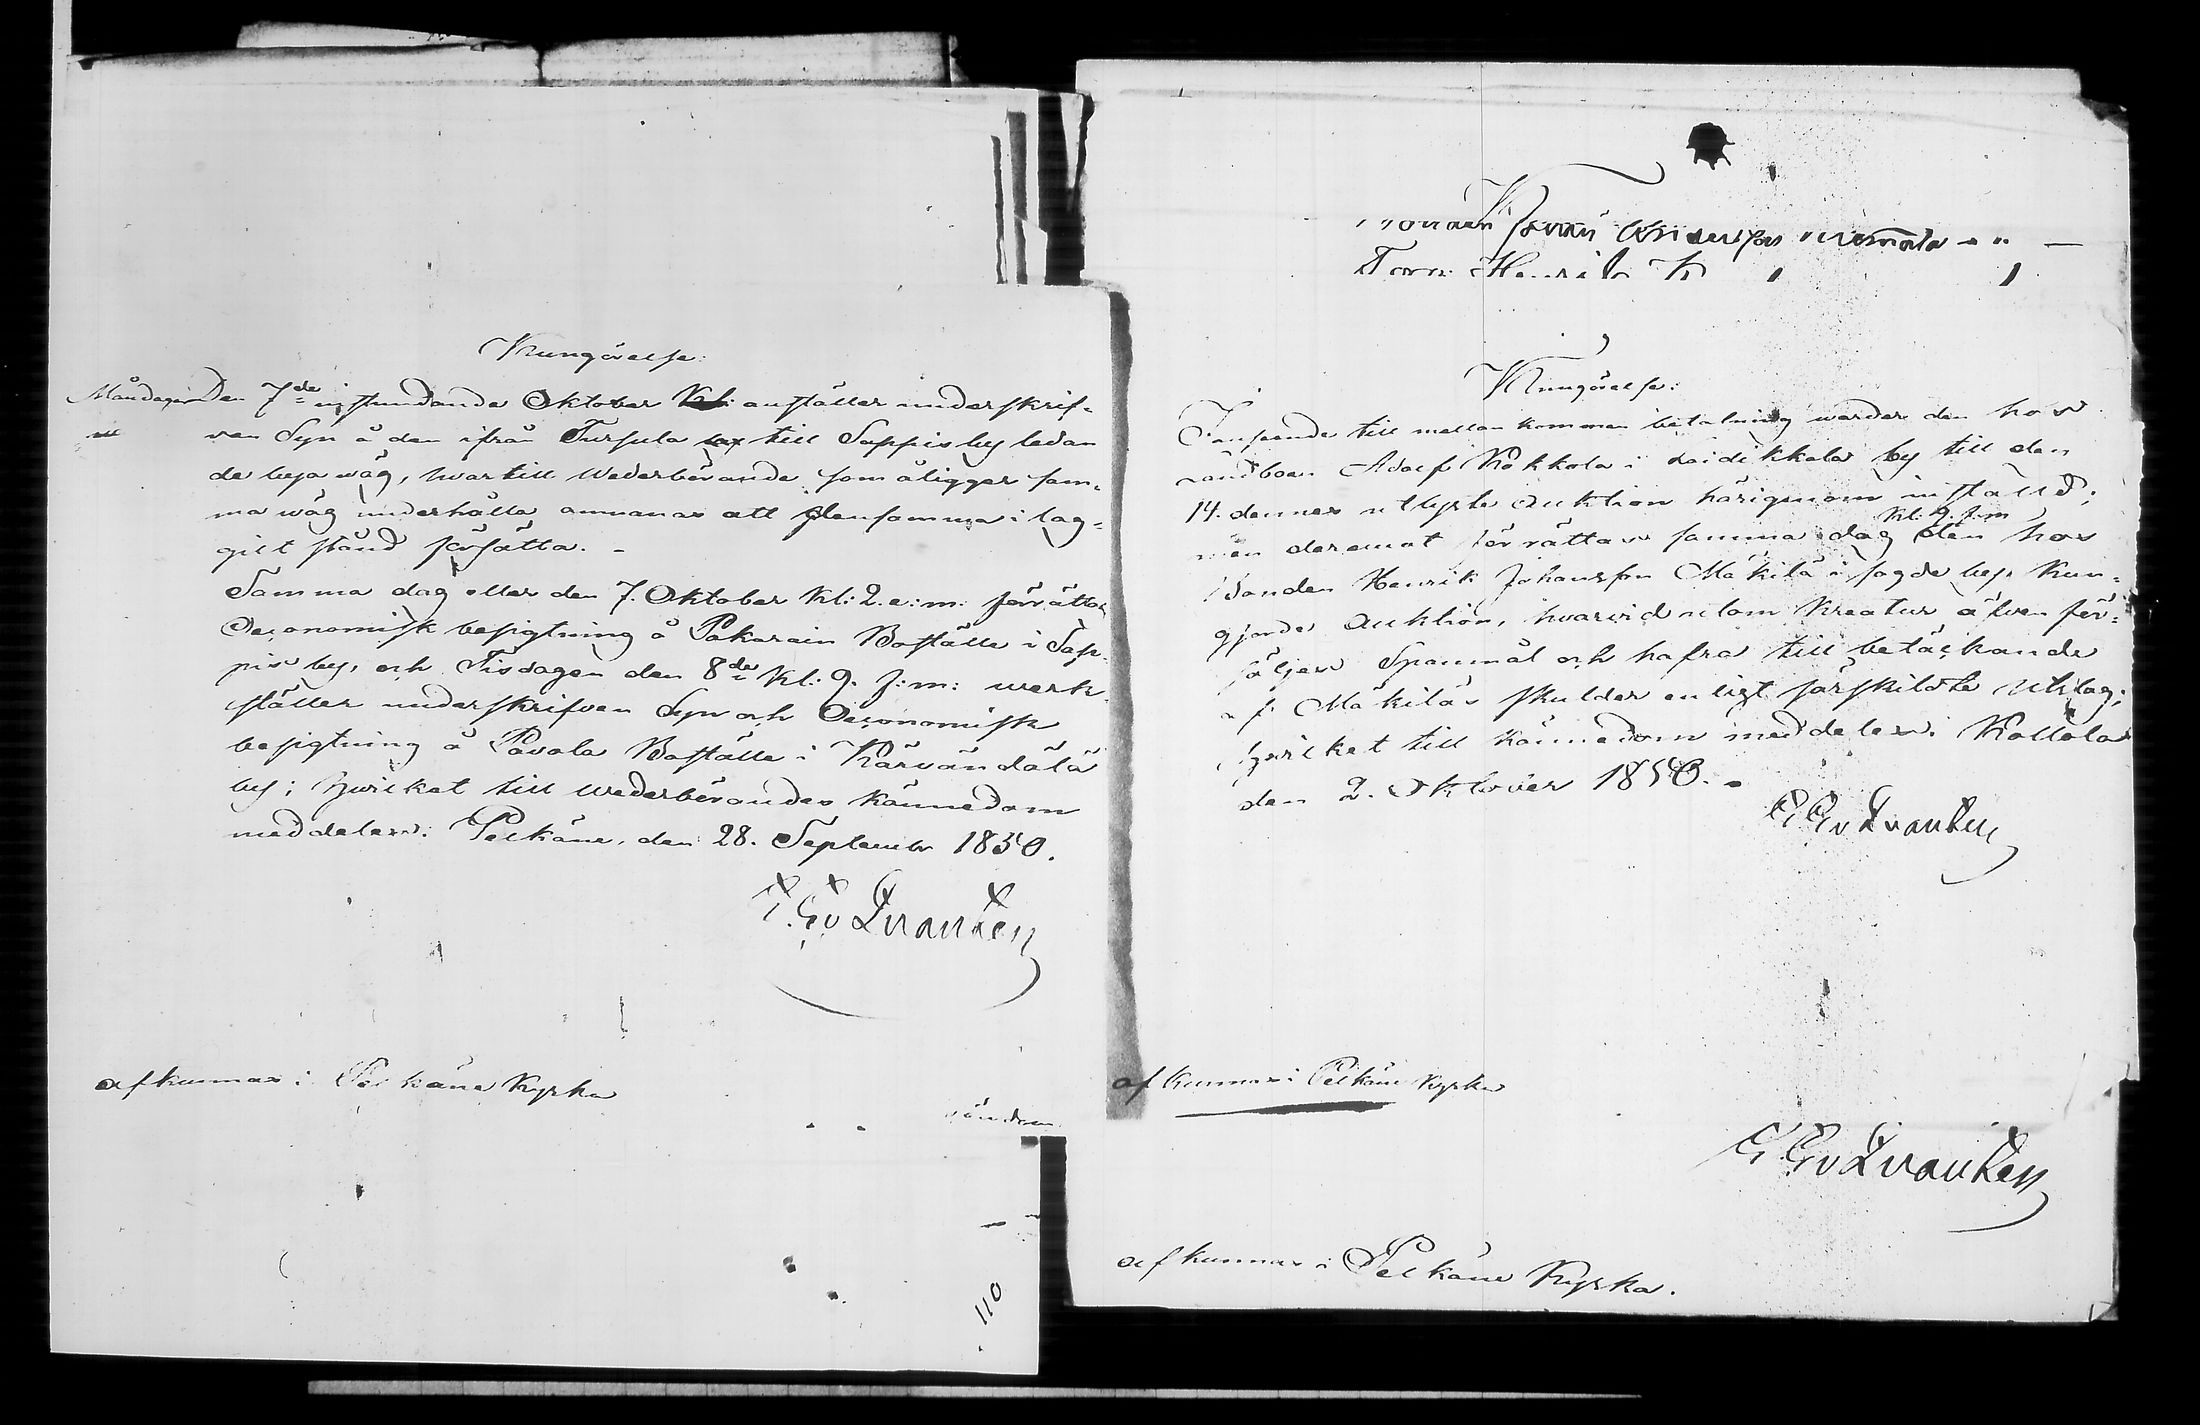 Kungörelse:
Måndagen den 7de instundande Oktober Kl: anställer underskrif-
ven Syn å den ifrån Tursula till Sappis by ledan
de bya väg, hvartill Wederbörande som åligger sam-
ma wäg underhålla anmanas att densamma i lag-
gilt stånd försätta. -
Samma dag eller den 7. Oktober Kl: 2. e:m: förrättas
Oeconomisk besigtning å Pakarain Boställe i Sap-
pis by, och Tisdagen den 8de Kl: 9. f:m: werk-
ställer underskrifven Syn och Oeconomisk
besigtning å Pavola Boställe i Kärvändälä
by; hwilket till wederbörandes kännedom
meddelas. Pelkäne, den 28. September 1850.
G. Gv Qvanten
afkunnas i Pelkäne Kyrka
110
Torp: Henrik
Kungörelse:
I anseende till mellankommen betalning warder den hos
landboen Adolf Kokkola i Laidikkala by till den
14. dennes utlyste Auktion härigenom inställd;
men deremot förrättas samma dag Kl: 9. f.m den hos
Bonden Henrik Johansson Mäkilä i sagde by, kun-
gjorde Auktion, hvarvid utom Kreatur äfven för-
säljes Spanmål och hafra till betäckande
af Mäkiläs skulder enligt särskildte Utslag;
hwilket till kännedom meddelas. Kollola
den 2. Oktober 1850. -
G Gv Qvanten
afkunnas i Pelkäne Kyrka
G Gv Qvanten
afkunnas i Pelkäne Kyrka.